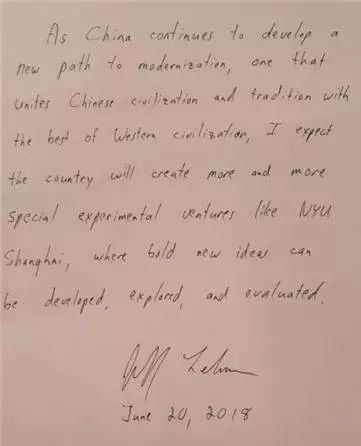 As China continues to develop a
new path to modernization, one that
unites Chinese civilization and tradition with
the best of Western civilization, I expect
the country will create more and more
special experimental ventures like NYU
Shanghai, where bold new ideas can
be developed, explored, and evaluated.
Jeff Lehman
June 20, 2018